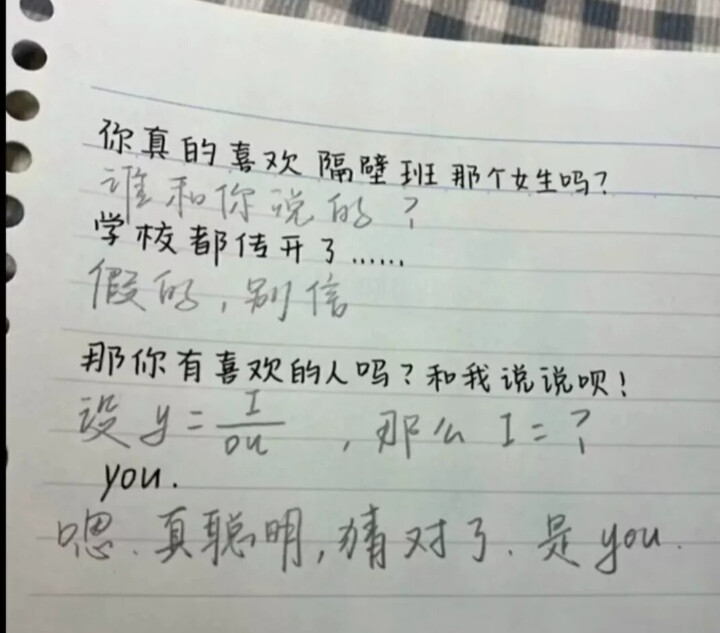 你真的喜欢隔壁班那个女生吗？
谁和你说的？
学校都传开了……
假的，别信
那你有喜欢的人吗？和我说说呗！
设 y = I/ou ，那么 I = ？
you.
嗯、真聪明，猜对了、是 you.